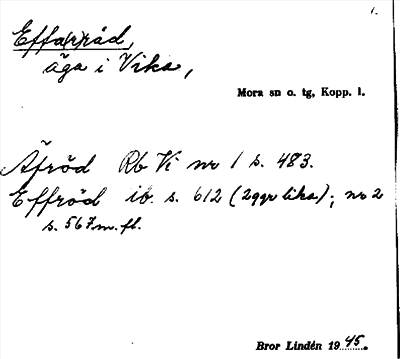 1.
Effa(r)råd,
äga i Vika,
Mora sn o. tg, Kopp. l.
Äfröd Rb Vi nr 1 s. 483.
Effröd ib. s. 612 (2ggr lika); nr 2
s. 567 m. fl.
Bror Lindén 1945.